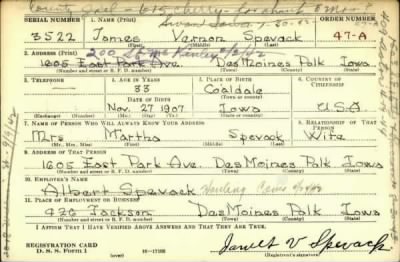 County Jail - 615 Cherry
SERIAL NUMBER 1. NAME (Print) ORDER NUMBER
3522 James Vernon Spevack 47-A
(First) (Middle) (Last)
2. ADDRESS (Print)
1605 East Park Ave. DesMoines Polk Iowa
(Number and street or R. F. D. number) (Town) (County) (State)
3. TELEPHONE 4. AGE IN YEARS 5. PLACE OF BIRTH 6. COUNTRY OF CITIZENSHIP
33 Coaldale
(Town or county)
DATE OF BIRTH
Nov. 27 1907 Iowa U.S.A
(Mo.) (Day) (Yr.) (State or country)
7. NAME OF PERSON WHO WILL ALWAYS KNOW YOUR ADDRESS 8. RELATIONSHIP OF THAT PERSON
Mrs Martha Spevack Wife
(Mr., Mrs., Miss) (First) (Middle) (Last)
9. ADDRESS OF THAT PERSON
1605 East Park Ave. DesMoines Polk Iowa
(Number and street or R. F. D. number) (Town) (County) (State)
10. EMPLOYER'S NAME
Albert Spevack
11. PLACE OF EMPLOYMENT OR BUSINESS
426 Jackson DesMoines Polk Iowa
(Number and street or R. F. D. number) (Town) (County) (State)
I AFFIRM THAT I HAVE VERIFIED ABOVE ANSWERS AND THAT THEY ARE TRUE.
REGISTRATION CARD
D. S. S. Form 1 (over) James V Spevack
(Registrant's signature)